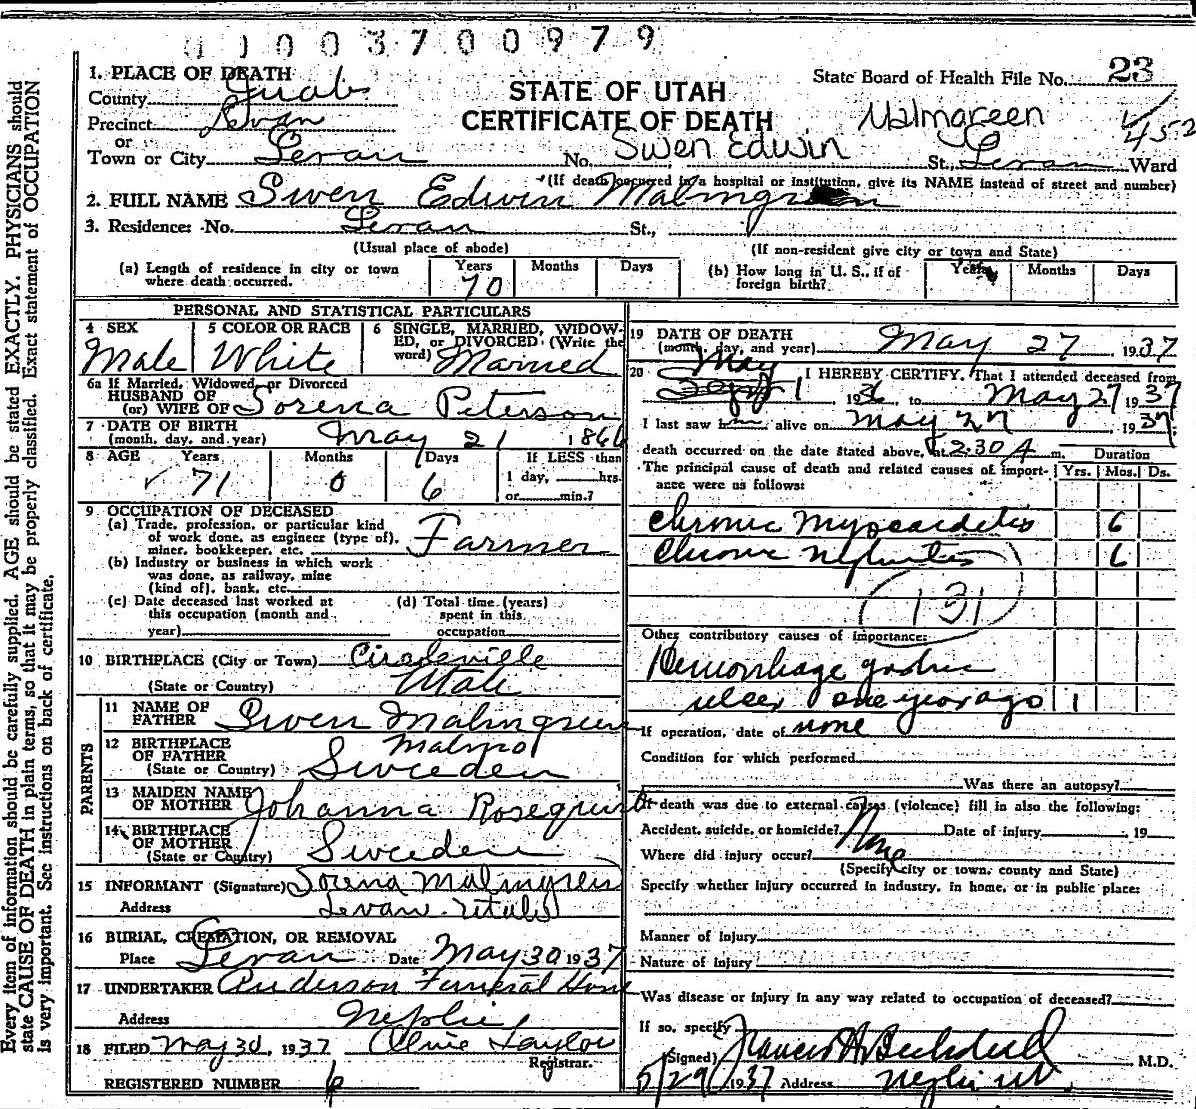 1003700979
State Board of Health File No. 23
1. PLACE OF DEATH
County Juab
STATE OF UTAH
Precinct Levan
CERTIFICATE OF DEATH
Malmgreen
452
or
Town or City Levan No. Swen Edwin St., Levan Ward
(If death occurred in a hospital or institution, give its NAME instead of street and number)
2. FULL NAME Swen Edwin Malmgreen
3. Residence: No. Levan St.,
(Usual place of abode) (If non-resident give city or town and State)
(a) Length of residence in city or town where death occurred. Years 70 Months Days
(b) How long in U. S., if of foreign birth? Years Months Days
PERSONAL AND STATISTICAL PARTICULARS
4 SEX Male
5 COLOR OR RACE White
6 SINGLE, MARRIED, WIDOWED, or DIVORCED (Write the word) Married
6a If Married, Widowed, or Divorced
HUSBAND OF
(or) WIFE OF Sorena Peterson
7 DATE OF BIRTH
(month, day, and year) May 21 1866
8 AGE Years 71 Months 0 Days 6
If LESS than
1 day, hrs.
or min.?
9 OCCUPATION OF DECEASED
(a) Trade, profession, or particular kind
of work done, as engineer (type of),
miner, bookkeeper, etc. Farmer
(b) Industry or business in which work
was done, as railway, mine
(kind of), bank, etc.
(c) Date deceased last worked at
this occupation (month and
year)
(d) Total time (years)
spent in this
occupation
10 BIRTHPLACE (City or Town) Circleville
(State or Country) Utah
PARENTS
11 NAME OF
FATHER Swen Malmgreen
12 BIRTHPLACE
OF FATHER Malmo
(State or Country) Sweden
13 MAIDEN NAME
OF MOTHER Johanna Rosequist
14 BIRTHPLACE
OF MOTHER
(State or Country) Sweden
15 INFORMANT (Signature) Sorena Malmgren
Address Levan Utah
16 BURIAL, CREMATION, OR REMOVAL
Place Levan Date May 30 1937
17 UNDERTAKER Anderson Funeral Home
Address Nephi
18 FILED May 30, 1937 Olive Taylor
Registrar.
REGISTERED NUMBER 6
19 DATE OF DEATH
(month, day, and year) May 27, 1937
20 May
Sept 1 I HEREBY CERTIFY, That I attended deceased from
1936, to May 27 1937
I last saw him alive on May 27 1937
death occurred on the date stated above, at 2:30 A m. Duration
The principal cause of death and related causes of importance were as follows: Yrs. Mos. Ds.
Chronic Myocarditis 6
Chronic Nephritis 6
131
Other contributory causes of importance:
Hemorrhage gastric
ulcer one year ago 1
If operation, date of none
Condition for which performed
Was there an autopsy?
If death was due to external causes (violence) fill in also the following:
Accident, suicide, or homicide? None Date of injury 19
Where did injury occur?
(Specify city or town, county and State)
Specify whether injury occurred in industry, in home, or in public place:
Manner of injury
Nature of injury
Was disease or injury in any way related to occupation of deceased?
If so, specify
(Signed) Francis A Beckstead M.D.
5/29 1937 Address Nephi Ut.
Every item of information should be carefully supplied. AGE should be stated EXACTLY. PHYSICIANS should
state CAUSE OF DEATH in plain terms, so that it may be properly classified. Exact statement of OCCUPATION
is very important. See instructions on back of certificate.